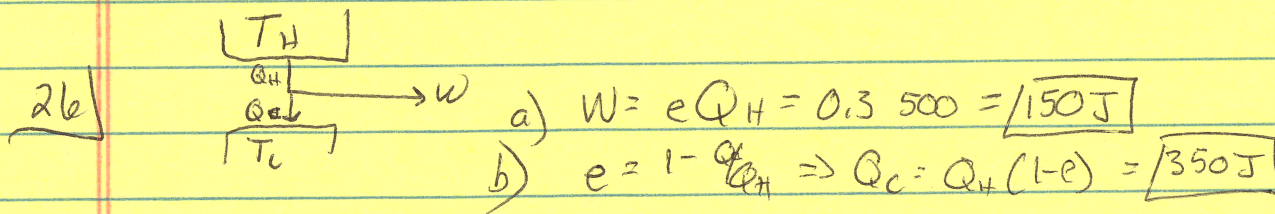 26
T_H
Q_H
→ W
Q_C
T_C
a) W = e Q_H = 0.3 500 = 150 J
b) e = 1 - Q_C/Q_H => Q_C = Q_H (1-e) = 350 J